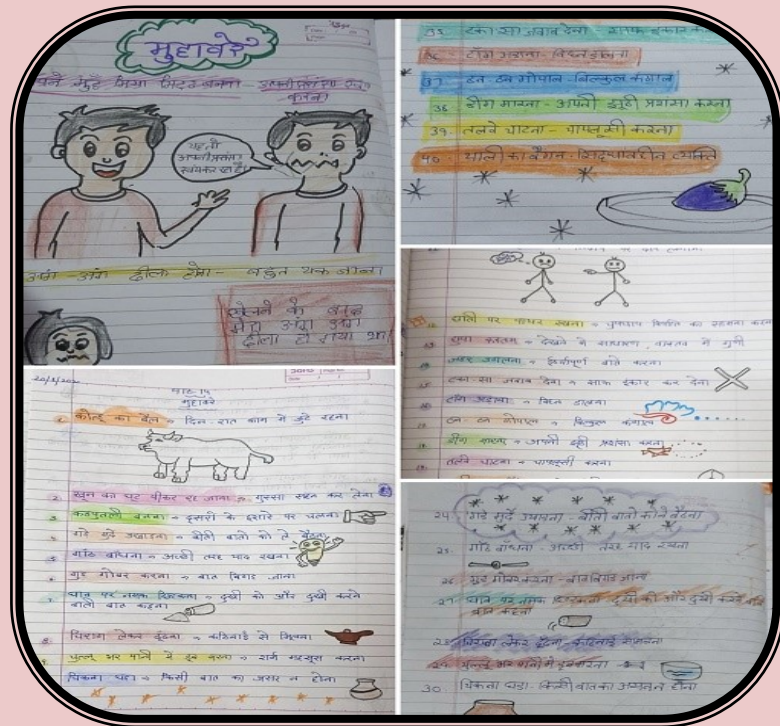 मुहावरे
अपने मुँह मिया मिट्ठू बनना - अपनी प्रशंसा स्वयं
करना
यह तो
अपनी प्रशंसा
स्वयं कर रहा है।
अंग-अंग ढीला होना - बहुत थक जाना
खेलने के बाद
मेरा अंग अंग
ढीला हो गया था।
35. टका सा जवाब देना साफ इंकार कर
36. टाँग अड़ाना - विघ्न डालना
37. ठन-ठन गोपाल - बिल्कुल कंगाल
38. डींग मारना - अपनी झूठी प्रशंसा करना
39. तलवे चाटना - चापलूसी करना
40. थाली का बैंगन - सिद्धांतहीन व्यक्ति
छाती पर पत्थर रखना - चुपचाप विपत्ति को सहन करना
छुपा रुस्तम - देखने में साधारण, वास्तव में गुणी
जहर उगलना - ईर्ष्यापूर्ण बातें करना
टका सा जवाब देना - साफ इंकार कर देना
टाँग अड़ाना - विघ्न डालना
ठन-ठन गोपाल - बिल्कुल कंगाल
डींग मारना - अपनी झूठी प्रशंसा करना
तलवे चाटना - चापलूसी करना
पाठ 14
मुहावरे
1. कोल्हू का बैल - दिन-रात काम में जुटे रहना
2. खून का घूँट पीकर रह जाना - गुस्सा सहन कर लेना
3. कठपुतली बनना - दूसरों के इशारे पर चलना
4. गड़े मुर्दे उखाड़ना - बीती बातों को ले बैठना
5. गाँठ बाँधना - अच्छी तरह याद रखना
6. गुड़ गोबर करना - बात बिगड़ जाना
7. घाव पर नमक छिड़कना - दुखी को और दुखी करने
वाली बात कहना
8. चिराग लेकर ढूँढना - कठिनाई से मिलना
9. चुल्लू भर पानी में डूब मरना - शर्म महसूस करना
चिकना घड़ा - किसी बात का असर न होना
24. गड़े मुर्दे उखाड़ना - बीती बातों को ले बैठना
25. गाँठ बाँधना - अच्छी तरह याद रखना
26. गुड़ गोबर करना - बात बिगड़ जाना
27. घाव पर नमक छिड़कना दुखी को और दुखी करने वाली
बात कहना
28. चिराग लेकर ढूँढना
29. चुल्लू भर पानी में डूब मरना
30. चिकना घड़ा - किसी बात का असर न होना